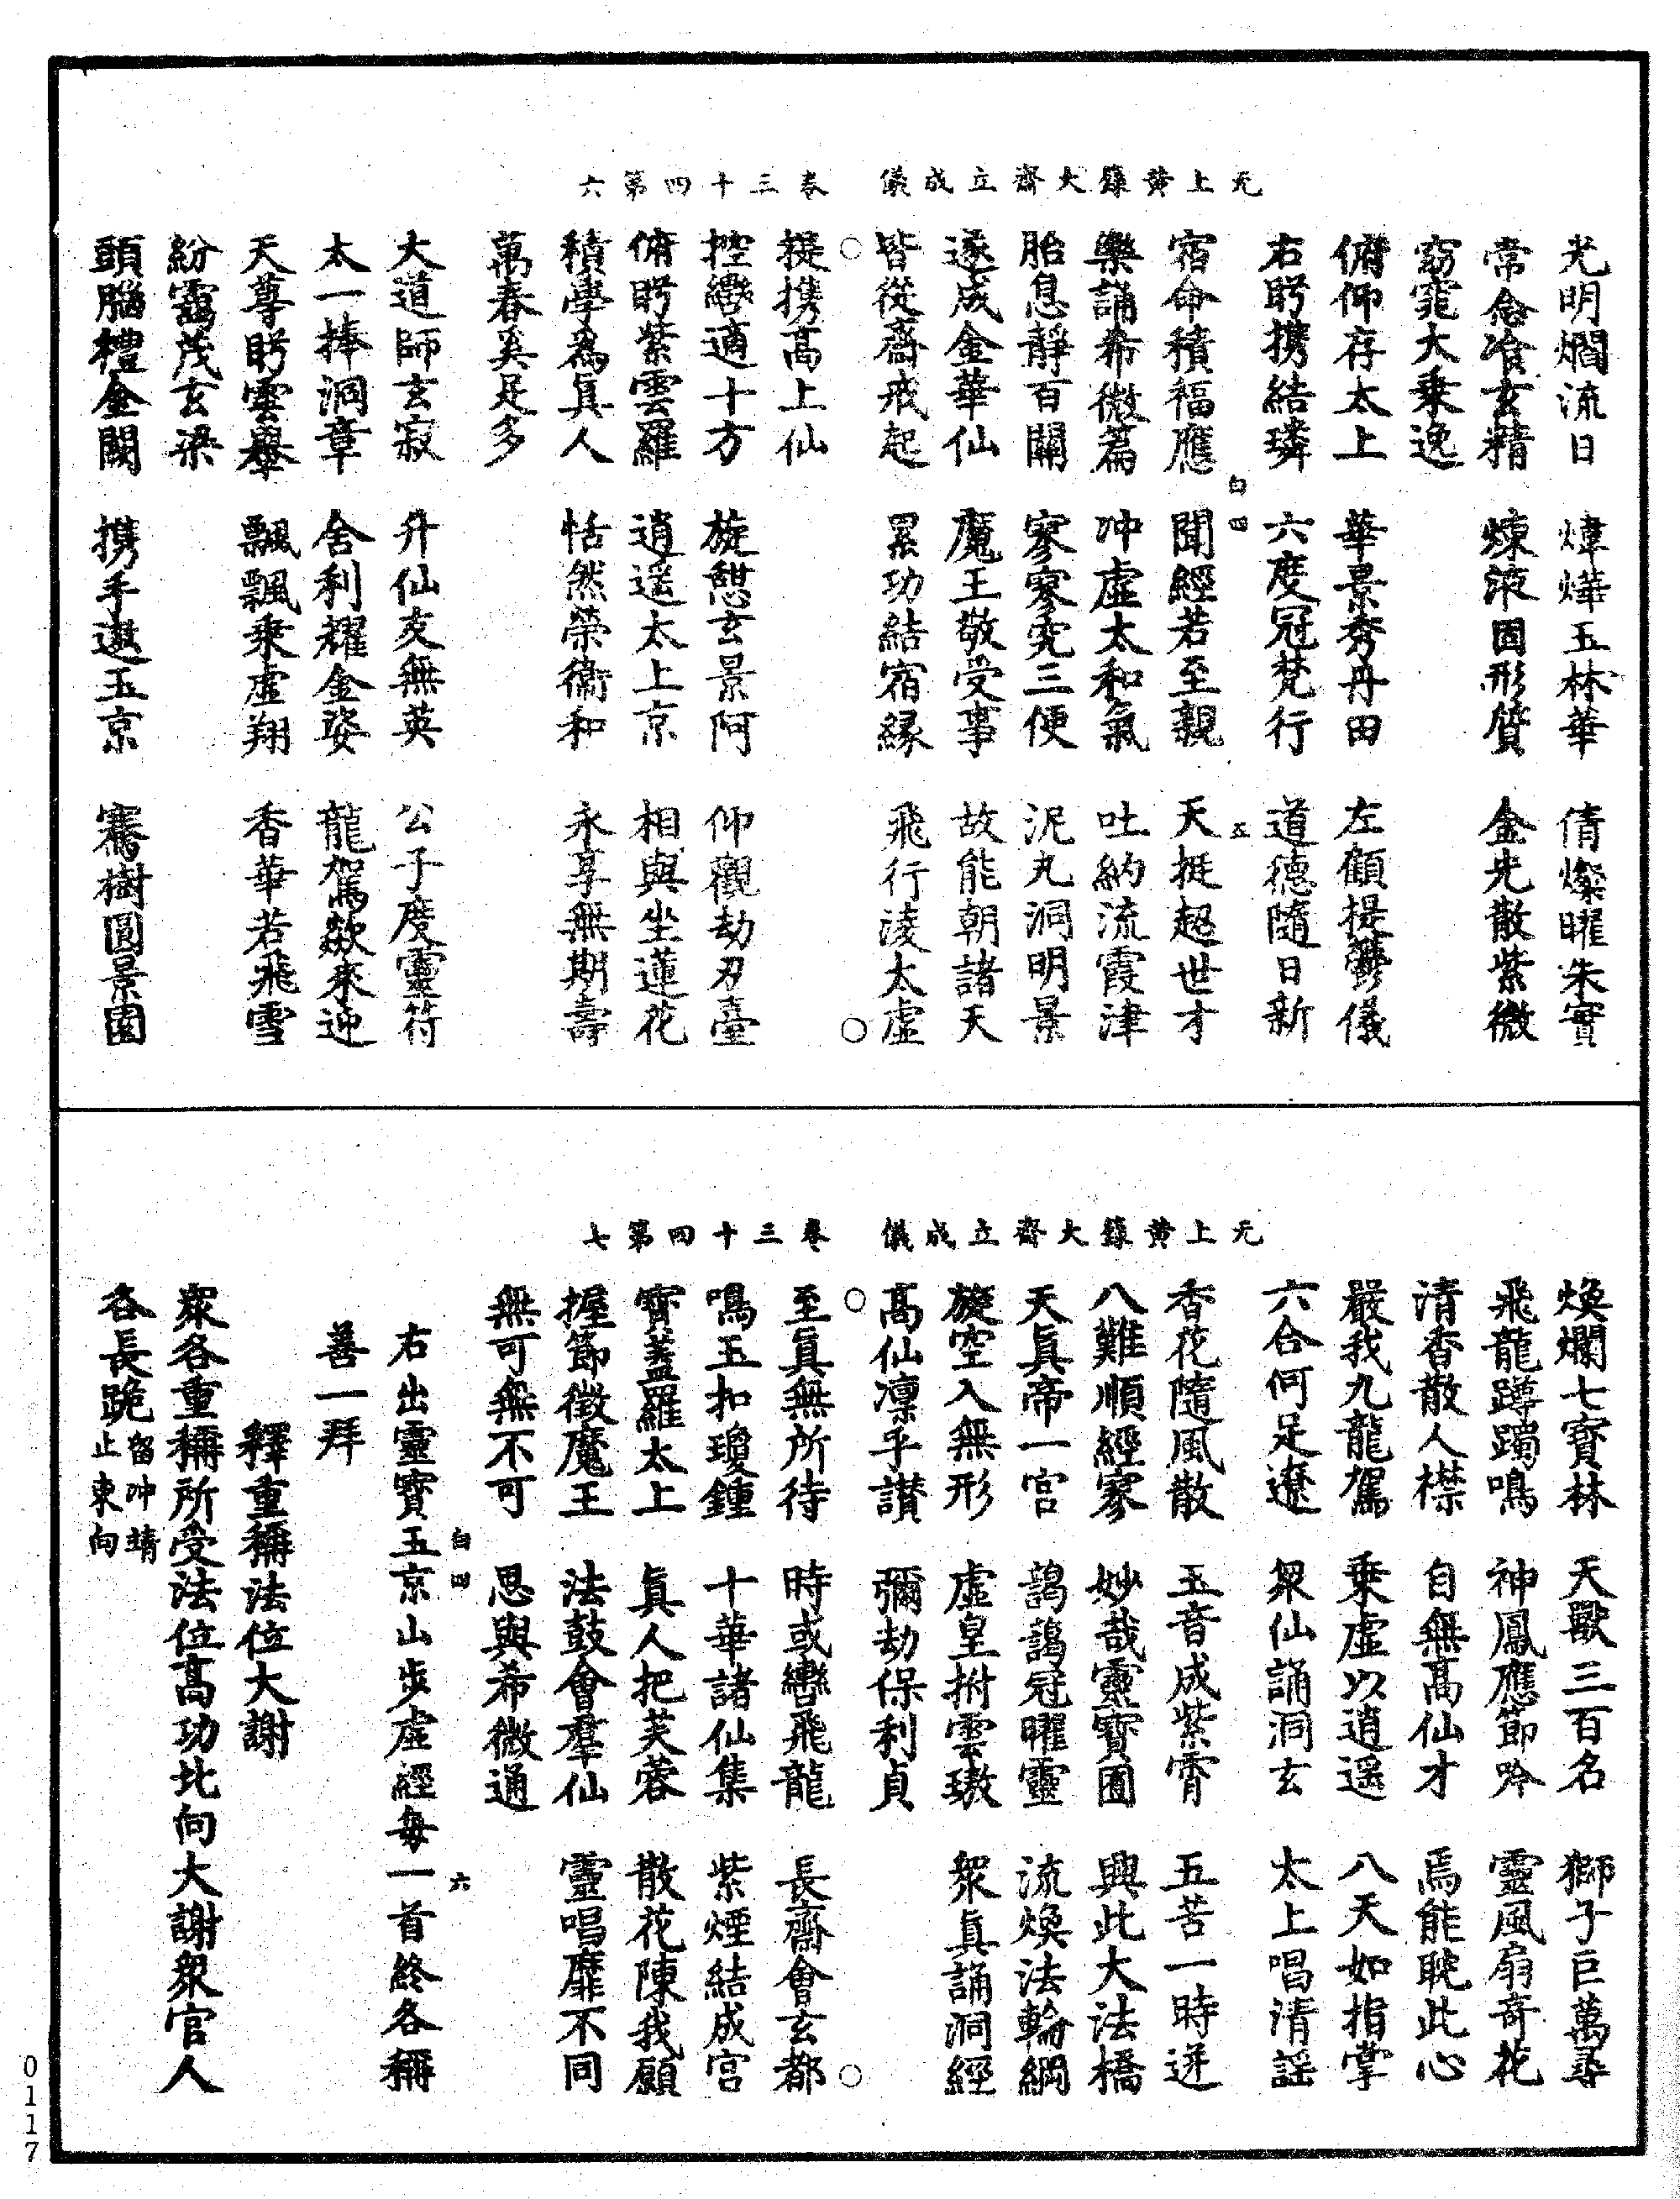 无上黃籙大齋立成儀　卷三十四第六
光明爓流日　煒燁玉林華　倩燦曜朱實
常念飡玄精　煉液固形質　金光散紫微
窈窕大乘逸
俯仰存太上　華景秀丹田　左顧提鬱儀
右眄攜結璘　六度冠梵行　道德隨日新
白四　五
宿命積福應　聞經若至親　天挺超世才
樂誦希微篇　沖虛太和氣　吐納流霞津
胎息靜百關　寥寥究三便　泥丸洞明景
遂成金華仙　魔王敬受事　故能朝諸天
皆從齋戒起　累功結宿緣　飛行淩太虛
提攜高上仙
控轡適十方　旋憩玄景阿　仰觀劫刃臺
俯眄紫雲羅　逍遙太上京　相與坐蓮花
積學為真人　恬然榮衛和　永享無期壽
萬春奚足多
大道師玄寂　升仙友無英　公子度靈符
太一捧洞章　舍利耀金姿　龍駕欻來迎
天尊眄雲轝　飄飄乘虛翔　香華若飛雪
紛靄茂玄梁
頭腦禮金闕　攜手遨玉京　騫樹圓景園
无上黃籙大齋立成儀　卷三十四第七
煥爛七寶林　天獸三百名　獅子巨萬尋
飛龍躑躅鳴　神鳳應節吟　靈風扇奇花
清香散人襟　自無高仙才　焉能耽此心
嚴我九龍駕　乘虛以逍遙　八天如指掌
六合何足遼　眾仙誦洞玄　太上唱清謠
香花隨風散　五音成紫霄　五苦一時迸
八難順經寥　妙哉靈寶囿　興此大法橋
天真帝一宮　靄靄冠曜靈　流煥法輪綱
旋空入無形　虛皇拊雲璈　眾真誦洞經
高仙凜乎讚　彌劫保利貞
至真無所待　時或轡飛龍　長齋會玄都
鳴玉扣瓊鍾　十華諸仙集　紫煙結成宮
寶蓋羅太上　真人把芙蓉　散花陳我願
握節徵魔王　法鼓會羣仙　靈唱靡不同
無可無不可　思與希微通
白四　六
右出靈寶玉京山步虛經每一首終各稱
善一拜
釋重稱法位大謝
眾各重稱所受法位高功北向大謝眾官人
各長跪留沖靖止東向
0117